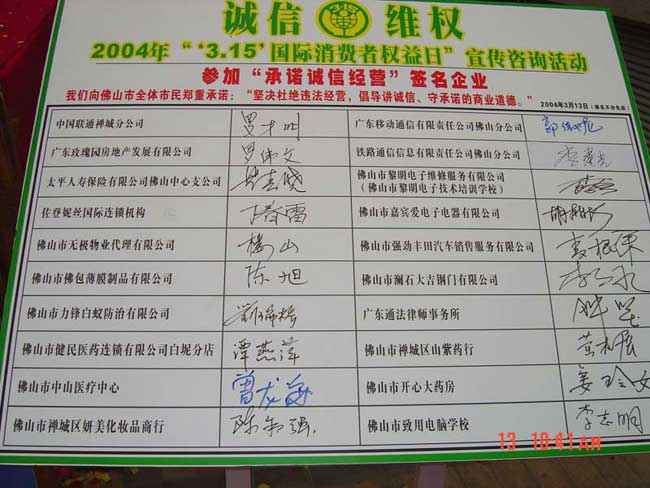 诚信 维权
2004年“‘3.15’国际消费者权益日”宣传咨询活动
参加“承诺诚信经营”签名企业
我们向佛山市全体市民郑重承诺：“坚决杜绝违法经营，倡导讲诚信、守承诺的商业道德。”
2004年3月13日(排名不分先后)
中国联通禅城分公司
广东移动通信有限责任公司佛山分公司
广东玫瑰园房地产发展有限公司
罗伟文
铁路通信信息有限责任公司佛山分公司
太平人寿保险有限公司佛山中心支公司
佛山市黎明电子维修服务有限公司
（佛山市黎明电子技术培训学校）
佐登妮丝国际连锁机构
佛山市嘉宾爱电子电器有限公司
佛山市无极物业代理有限公司
杨山
佛山市强劲丰田汽车销售服务有限公司
佛山市佛包薄膜制品有限公司
陈旭
佛山市澜石大吉钢门有限公司
佛山市力锋白蚁防治有限公司
广东通法律师事务所
佛山市健民医药连锁有限公司白坭分店
谭燕萍
佛山市禅城区山紫药行
佛山市中山医疗中心
佛山市开心大药房
姜玲女
佛山市禅城区妍美化妆品商行
陈韦强
佛山市致用电脑学校
李志明
13 10:41AM